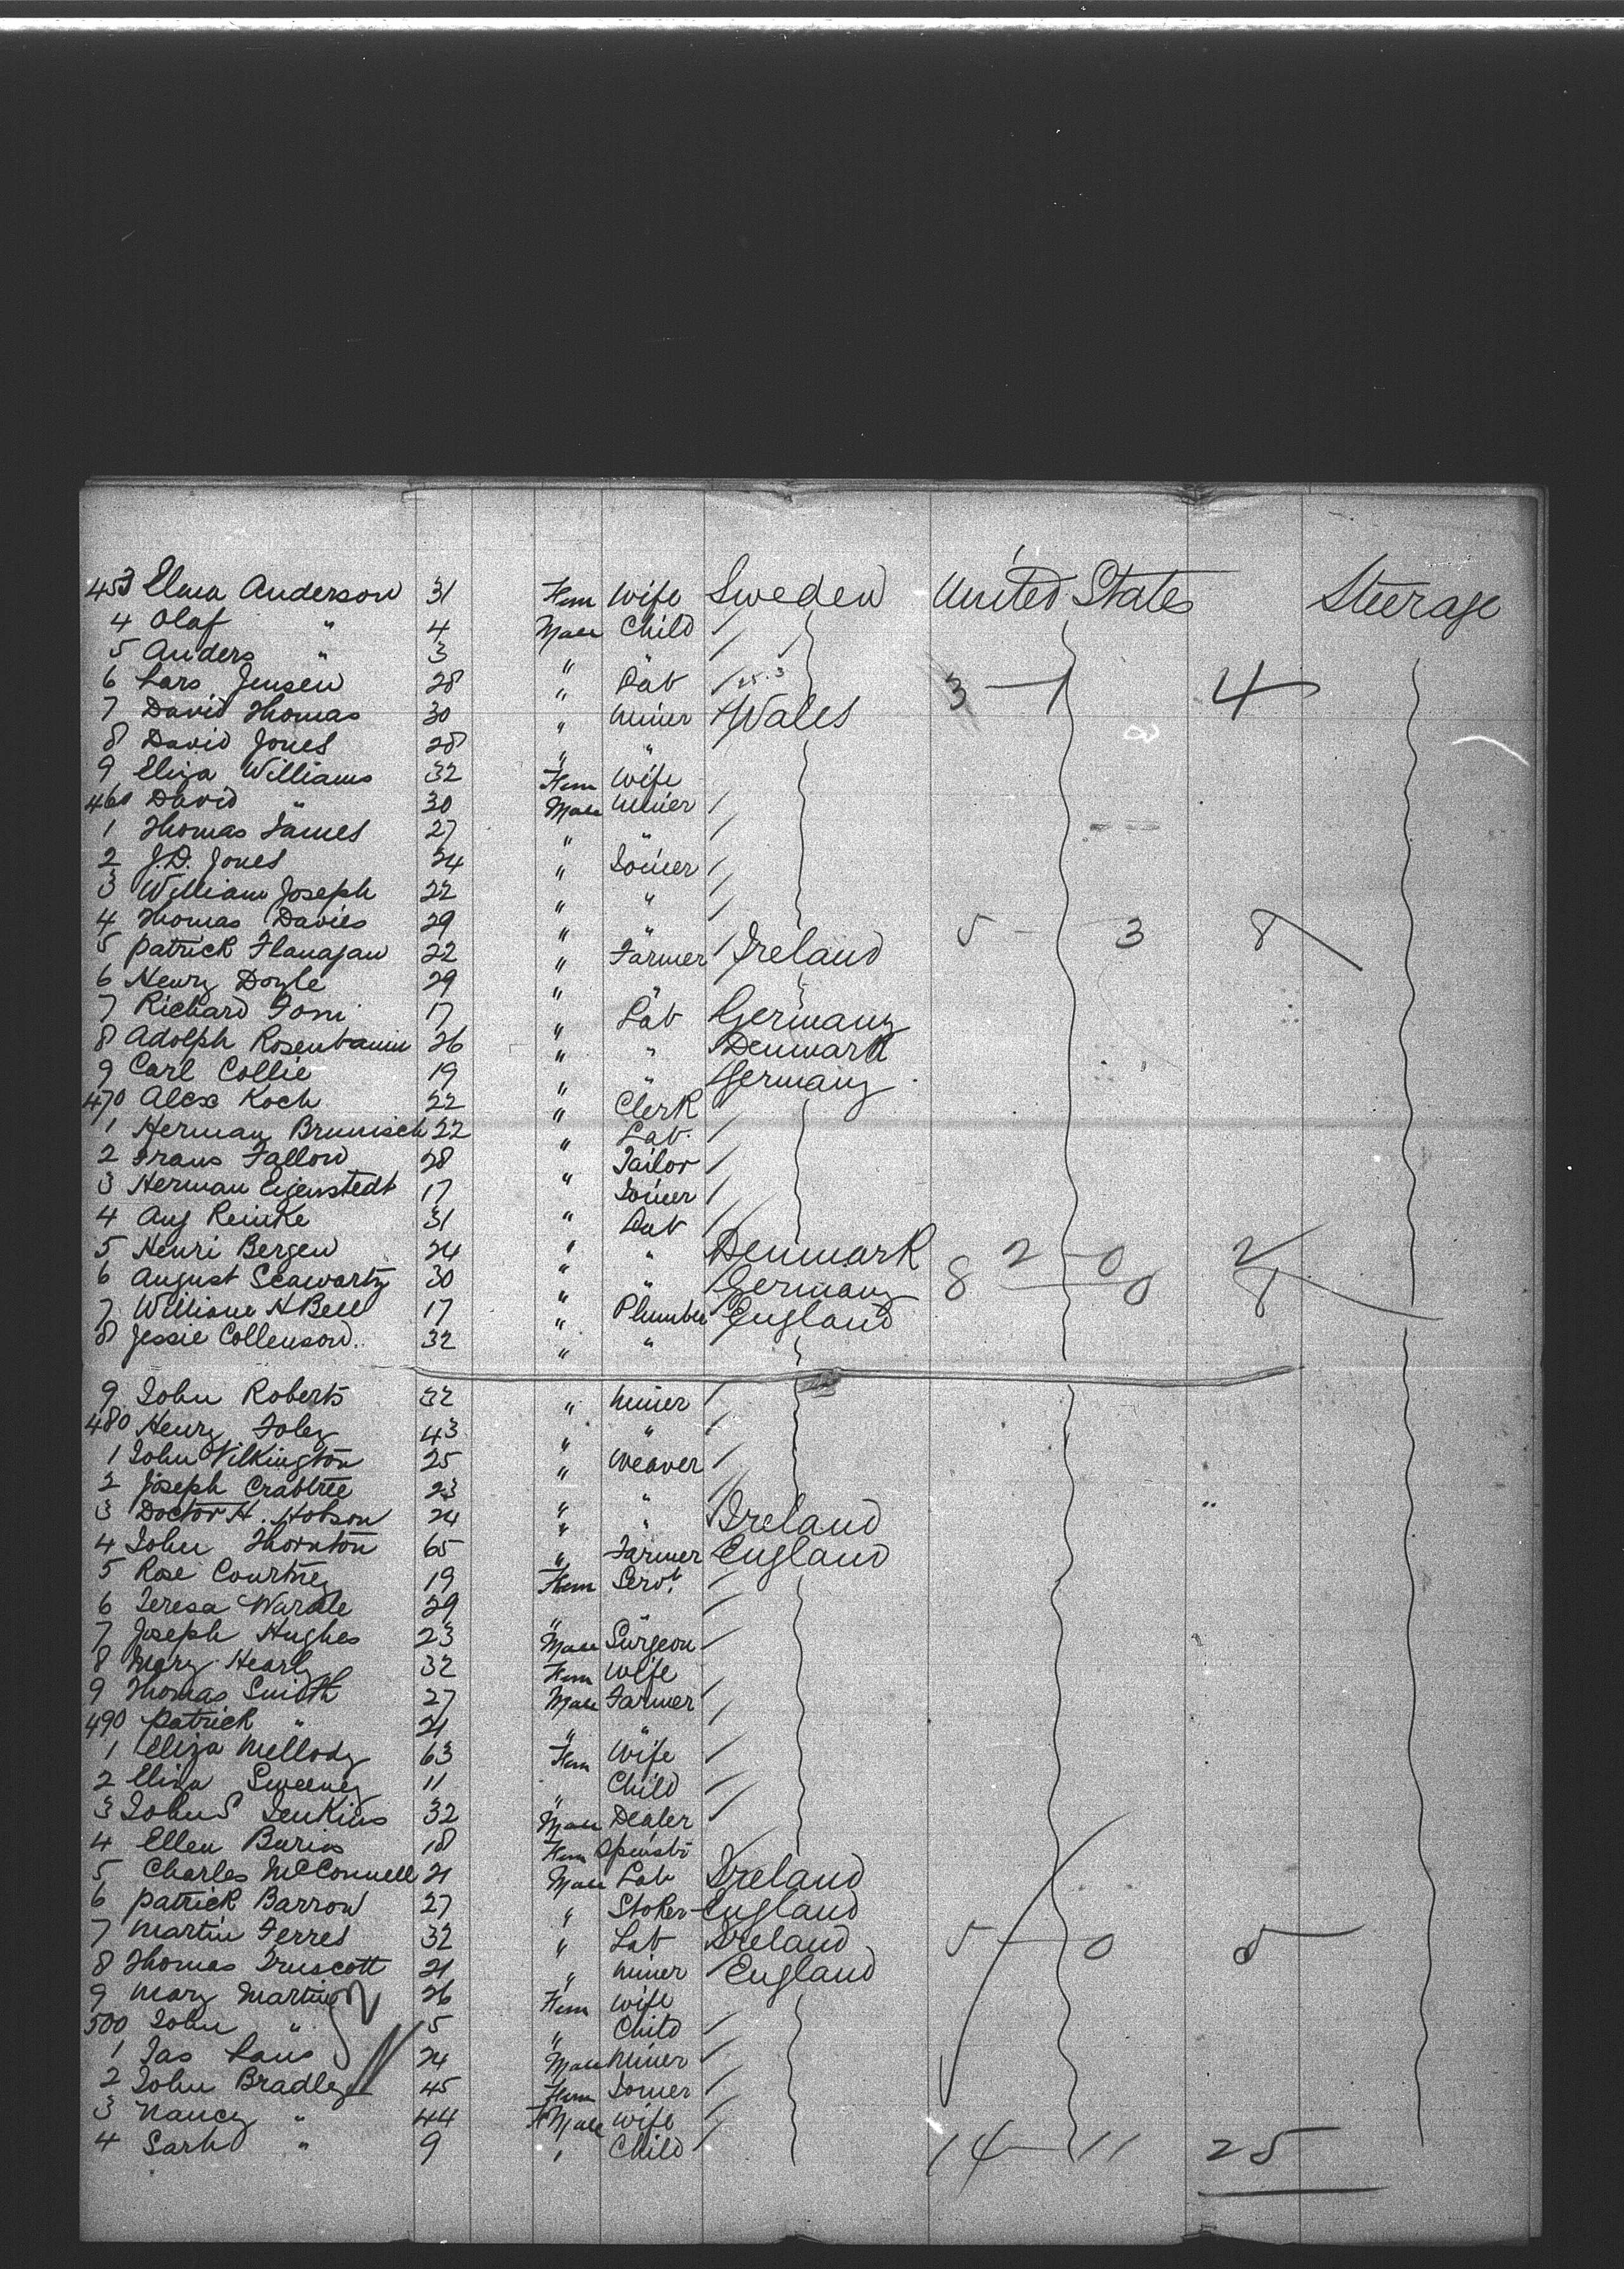 453 Elma Anderson 31 Fem Wife Sweden United States Steerage
4 Olaf " 4 Male Child /
5 Anders " 3 " " /
6 Lars Jensen 28 " Lab / 3 — 1 4
7 David Thomas 30 " Miner / Wales
8 David Jones 28 " "
9 Eliza Williams 32 Fem Wife
460 David " 30 Male Miner /
1 Thomas James 27 " " /
2 J.D. Jones 24 " Joiner /
3 William Joseph 22 " " /
4 Thomas Davies 29 " " / 5 - 3 8
5 Patrick Flanagan 22 " Farmer / Ireland
6 Henry Doyle 29 " "
7 Richard 17 " Lab Germany
8 Adolph Rosenbaum 26 " " Denmark
9 Carl Collie 19 " " Germany
470 Alex Koch 22 " Clerk
1 Herman Brunisch 22 " Lab. /
2 Frans Fallow 28 " Tailor /
3 Herman Eigenstedt 17 " Joiner /
4 Aug Reinke 31 " Lab /
5 Henri Bergen 24 " " Denmark 2 — 0 2
6 August Seawartz 30 " " Germany 8 — 0 8
7 William H Bell 17 " Plumber England
8 Jessie Collenson 32 " "
9 John Roberts 32 " Miner /
480 Henry Foley 43 " " /
1 John Pilkington 25 " Weaver /
2 Joseph Crabtree 23 " " /
3 Doctor H. Hobson 24 " " Ireland
4 John Thornton 65 " Farmer England
5 Rose Courtney 19 Fem Servt /
6 Teresa Wardle 29 " " /
7 Joseph Hughes 23 Male Surgeon /
8 Mary Hearly 32 Fem Wife
9 Thomas Smith 27 Male Farmer /
490 Patrick " 21 " " /
1 Eliza Mellody 63 Fem Wife /
2 Eliza Sweeney 11 " Child /
3 John S Jenkins 32 Male Dealer /
4 Ellen 18 Fem Spinstr
5 Charles McConnell 21 Male Lab Ireland
6 Patrick Barron 27 " Stoker England
7 Martin Ferres 32 " Lab Ireland 5 — 0 5
8 Thomas Truscott 21 " Miner / England
9 Mary Martin 26 Fem Wife
500 John " 5 " Child /
1 Jas 24 Male Miner /
2 John Bradley 45 Fem Joiner /
3 Nancy " 44 Male Wife /
4 Sarh " 9 " Child / 14 — 11 25